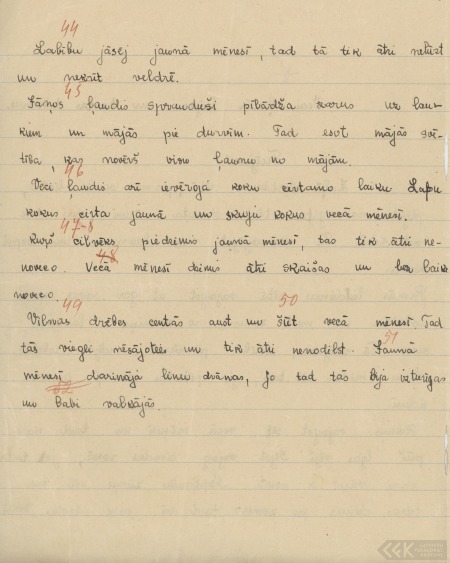 44
Labību jāsēj jaunā mēnesī, tad tā tik ātri nelūzt
un nekrīt veldrē.
45
Jāņos ļaudis sprauduši pīlādža zarus uz lau-
kiem un mājās pie durvīm. Tad esot mājās svē-
tība, kas novērš visu ļaunumu no mājām.
46
Veci ļaudis arī ievēroja koku ciršamo laiku. Lapu
kokus cirta jaunā un skuju kokus vecā mēnesī.
47-8
Kurš cilvēks piedzimis jaunā mēnesī, tas tik ātri ne-
48
noveco. Vecā mēnesī dzimis ātri skaišas un bez laika
noveco.
49 50
Vilnas drēbes centās aust un šūt vecā mēnesī. Tad
51
tās viegli nēsājoties un tik ātri nenodilst. Jaunā
mēnesī darināja linu drānas, jo tad tās bija izturīgas
52
un labi valkājās.